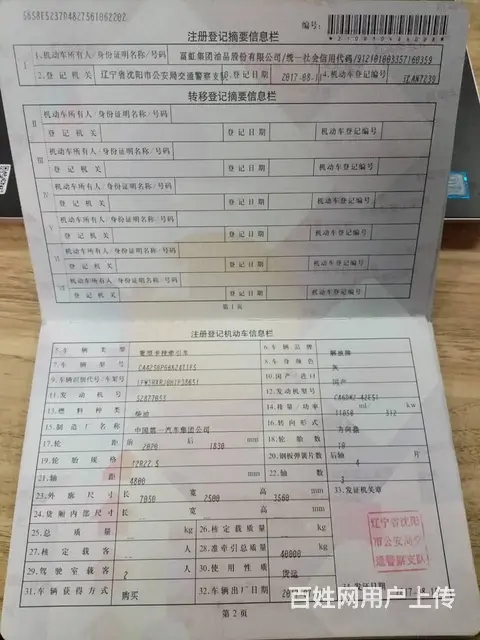 注册登记摘要信息栏
编号:
I
1.机动车所有人/身份证明名称/号码
富虹集团油品股份有限公司/统一社会信用代码/912101003357160359
2.登记机关 辽宁省沈阳市公安局交通警察支队 3.登记日期 2017-08-1 4.机动车登记编号
转移登记摘要信息栏
II 机动车所有人/身份证明名称/号码
登记机关 登记日期 机动车登记编号
III 机动车所有人/身份证明名称/号码
登记机关 登记日期 机动车登记编号
IV 机动车所有人/身份证明名称/号码
登记机关 登记日期 机动车登记编号
V 机动车所有人/身份证明名称/号码
登记机关 登记日期 机动车登记编号
VI 机动车所有人/身份证明名称/号码
登记机关 登记日期 机动车登记编号
VII 机动车所有人/身份证明名称/号码
登记机关 登记日期 机动车登记编号
第1页
注册登记机动车信息栏
5.车辆类型 重型半挂牵引车 6.车辆品牌 解放牌
7.车辆型号 8.车身颜色 灰
9.车辆识别代号/车架号 10.国产/进口 国产
11.发动机号 12.发动机型号 CA6DM2-42E51
13.燃料种类 柴油 14.排量/功率 11050 ml/ 312 kw
15.制造厂名称 中国第一汽车集团公司 16.转向形式 方向盘
17.轮距 前 2020 后 1830 mm 18.轮胎数 10
19.轮胎规格 12R22.5 20.钢板弹簧片数 后轴 4 片
21.轴距 4800 mm 22.轴数 3
23.外廓尺寸 长 7050 宽 2500 高 3560 mm 33.发证机关章
24.货厢内部尺寸 长 宽 高 mm
25.总质量 kg 26.核定载质量 kg
27.核定载客 人 28.准牵引总质量 40000 kg
29.驾驶室载客 2 人 30.使用性质 货运
31.车辆获得方式 购买 32.车辆出厂日期 34.发证日期
辽宁省沈阳
市公安局交
通警察支队
第2页
百姓网用户上传